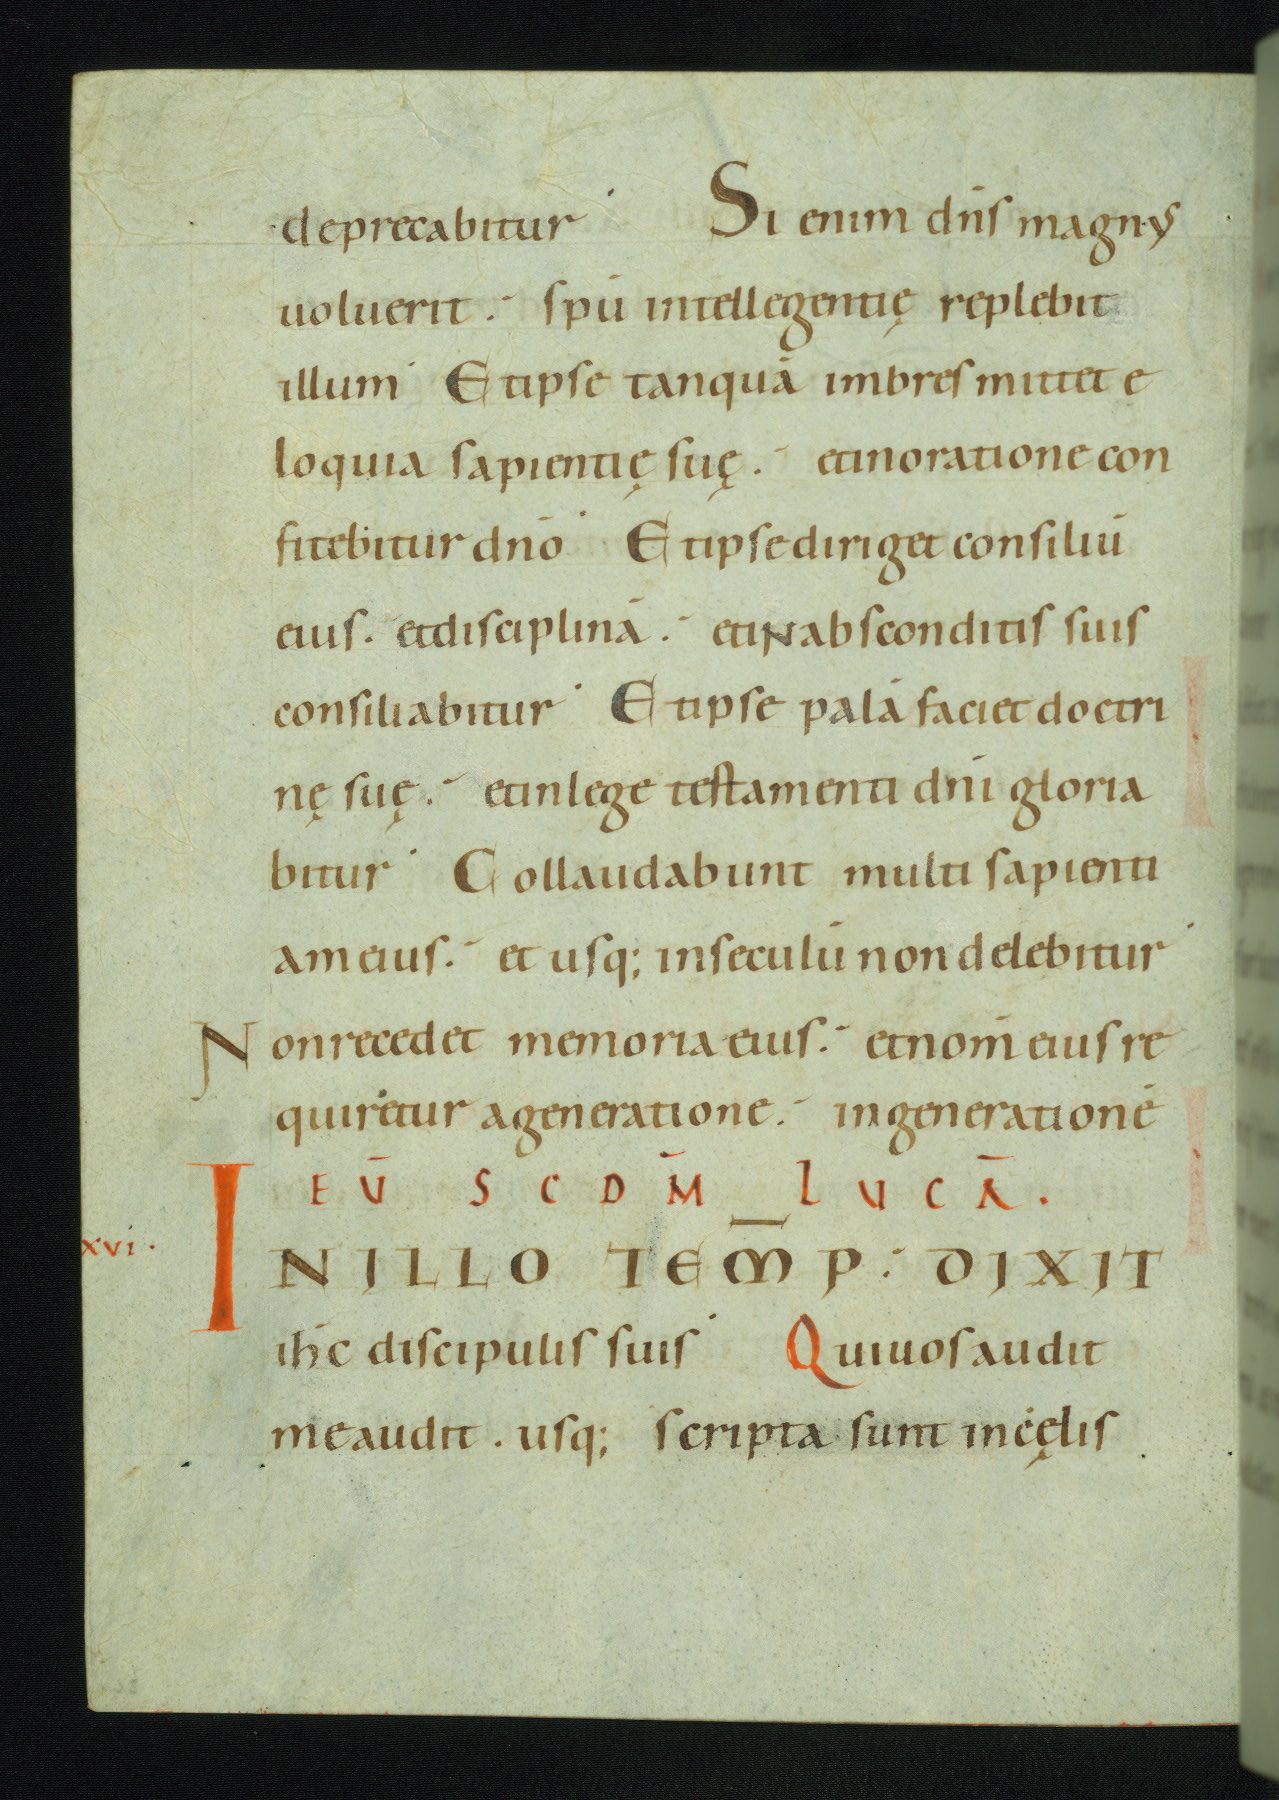 deprecabitur· Si enim dn̄s magnus
uoluerit.· spū intellegentię replebit
illum· Et ipse tanquā imbres mittet e
loquia sapientię suę.· et in oratione con
fitebitur dn̄o· Et ipse diriget consiliū
eius. et disciplinā.· et in absconditis suis
consiliabitur· Et ipse palā faciet doctri
nę suę.· et in lege testamenti dn̄i gloria
bitur· Collaudabunt multi sapienti
am eius.· et usq; in seculū non delebitur·
Non recedet memoria eius.· et nom̄ eius re
quiretur a generatione.· in generationē
EŪ SCDM̄ LUCĀ.
xvi· IN ILLO TEM̄P:· DIXIT
ih̄c discipulis suis· Qui uos audit
me audit. usq; scripta sunt in cęlis